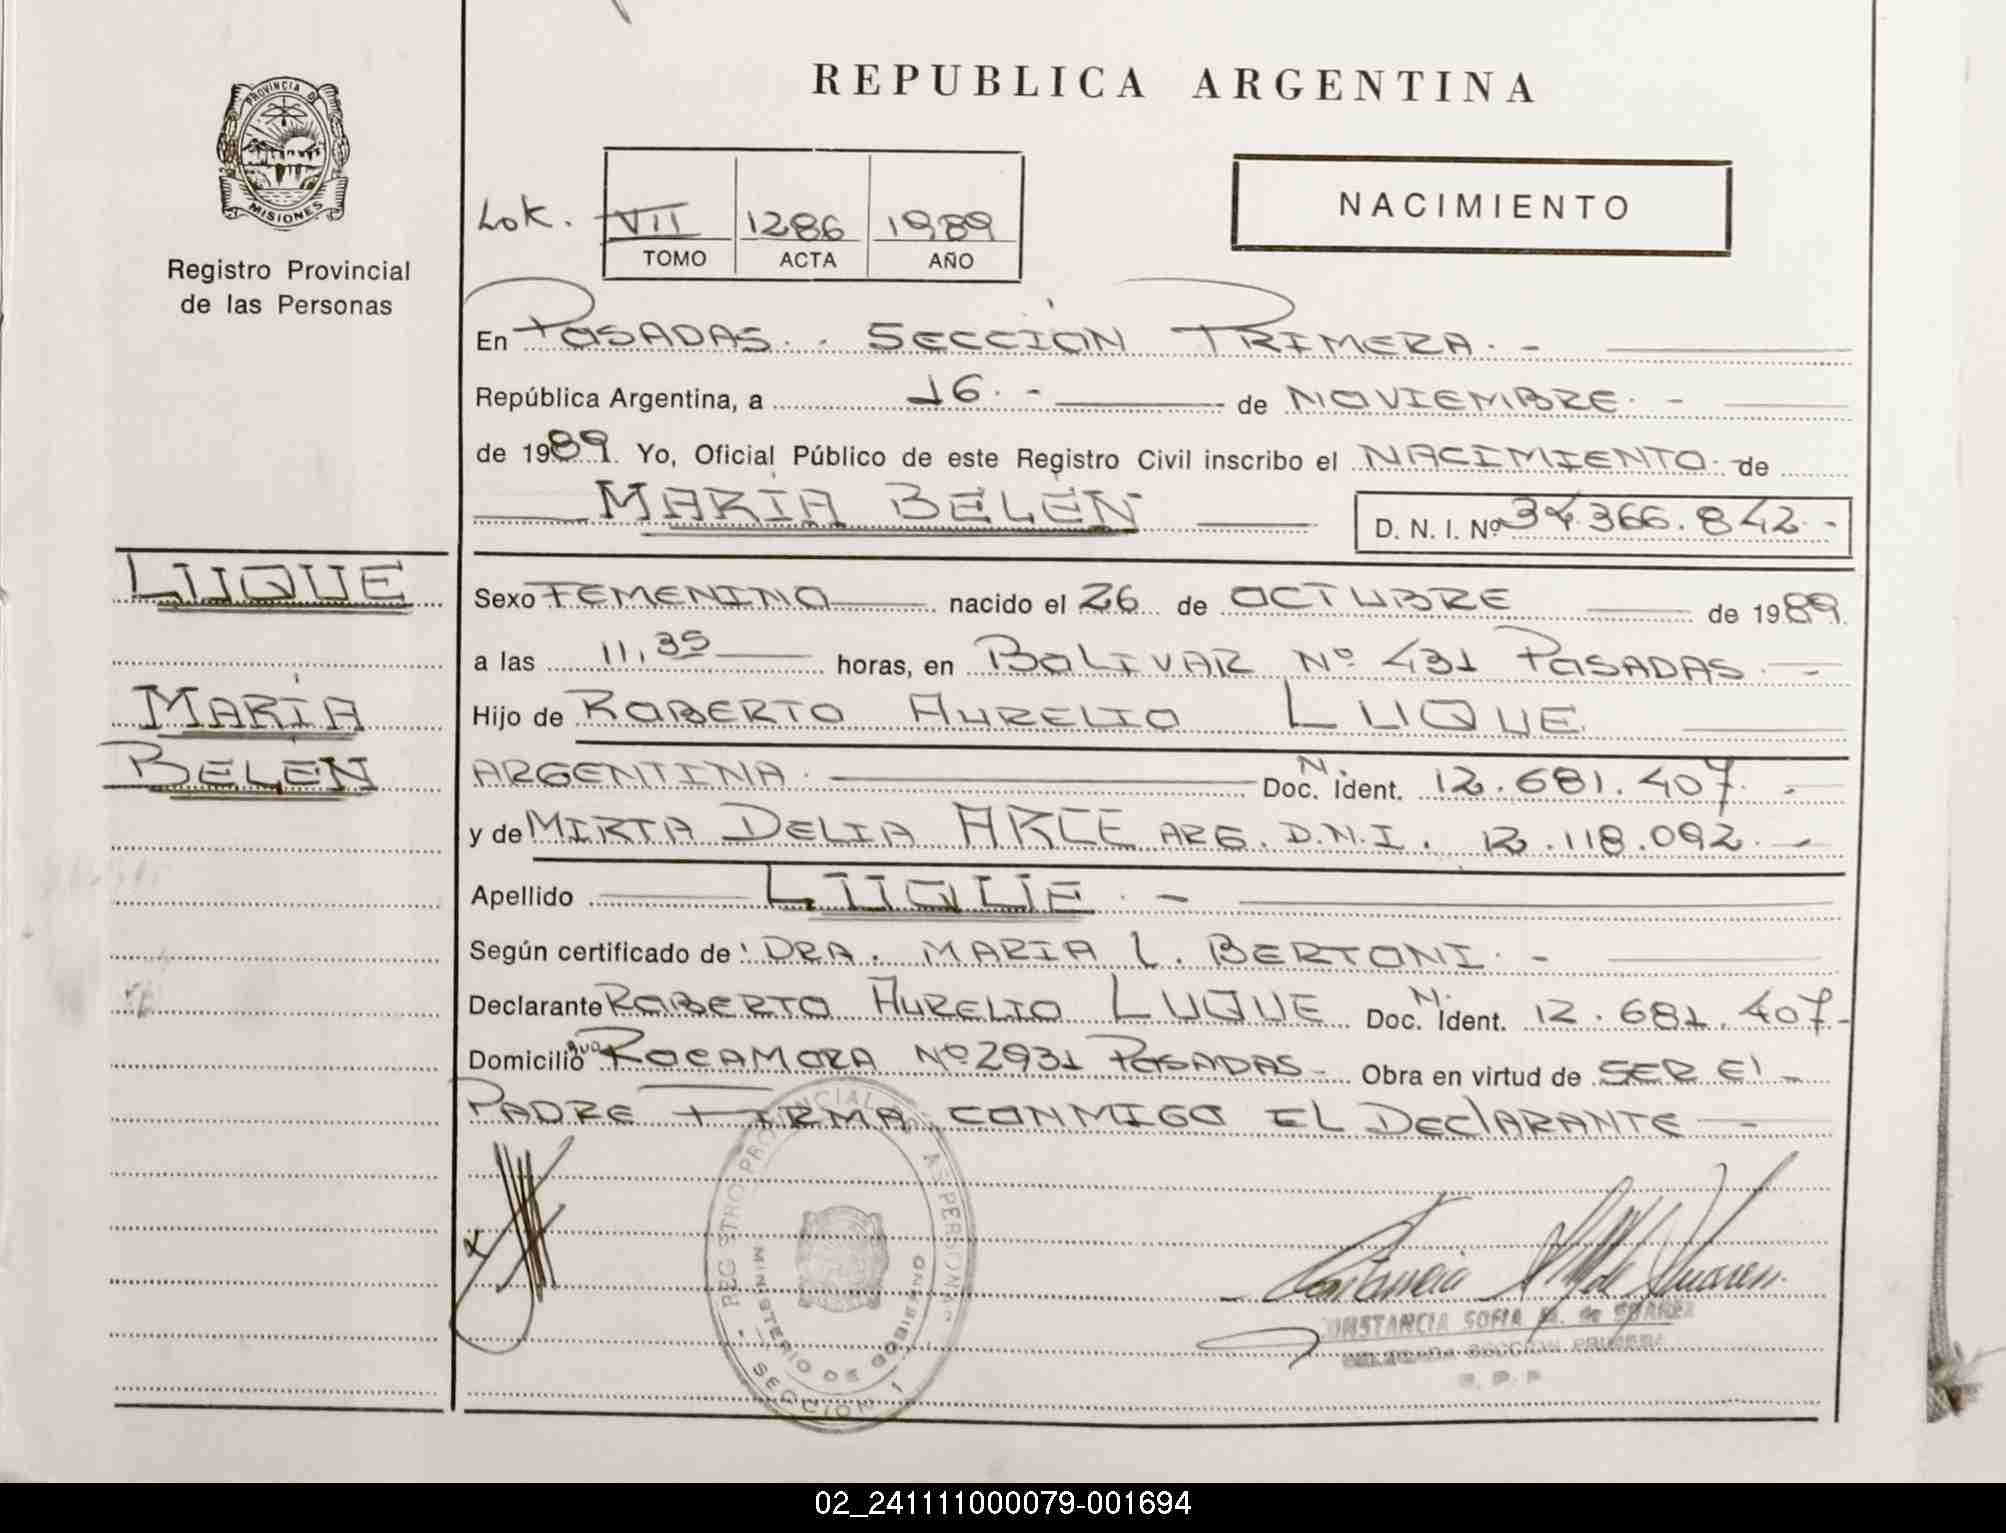 REPUBLICA ARGENTINA
PROVINCIA DE
MISIONES
Registro Provincial
de las Personas
NACIMIENTO
Lok. VII 1286 1989
TOMO ACTA AÑO
En POSADAS. . SECCIÓN PRIMERA. -
República Argentina, a 16. - de NOVIEMBRE. -
de 1989. Yo, Oficial Público de este Registro Civil inscribo el NACIMIENTO. de
MARÍA BELÉN D. N. I. Nº 34.366.842. -
LUQUE
MARÍA
BELÉN
Sexo FEMENINO nacido el 26 de OCTUBRE de 1989.
a las 11,35 horas, en BOLIVAR Nº 431 POSADAS. -
Hijo de ROBERTO AURELIO LUQUE
ARGENTINA. Doc. N. Ident. 12.681.407. -
y de MIRTA DELIA ARCE ARG. D.N.I. 12.118.092. -
Apellido LUQUE. -
Según certificado de: DRA. MARIA L. BERTONI. -
Declarante ROBERTO AURELIO LUQUE Doc. N. Ident. 12.681.407.-
Domicilio ROCAMORA Nº 2931 POSADAS- Obra en virtud de SER El -
PADRE FIRMA CONMIGO EL DEClARANTE -
REGISTRO PROVINCIAL DE LAS PERSONAS
MINISTERIO DE GOBIERNO
SECCION 1
CONSTANCIA SOFIA M. de SUAREZ
DELEGADA SECCION PRIMERA
R. P. P.
02_241111000079-001694